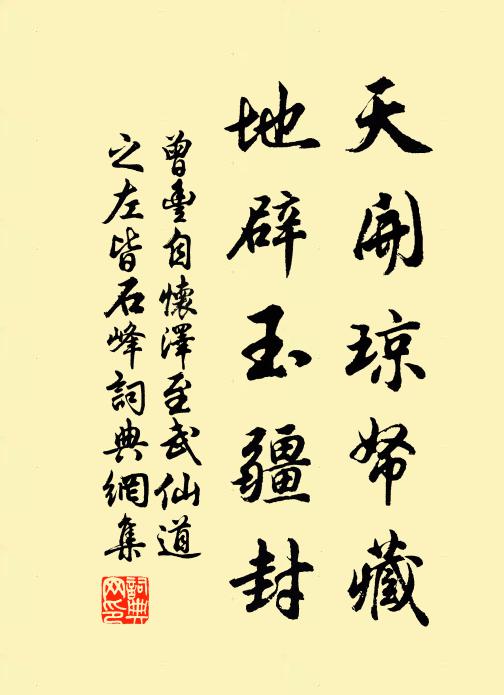 天開瓊帑藏
地辟玉疆封
曾豊自懷澤至武仙道
之左皆石峰詞典網集